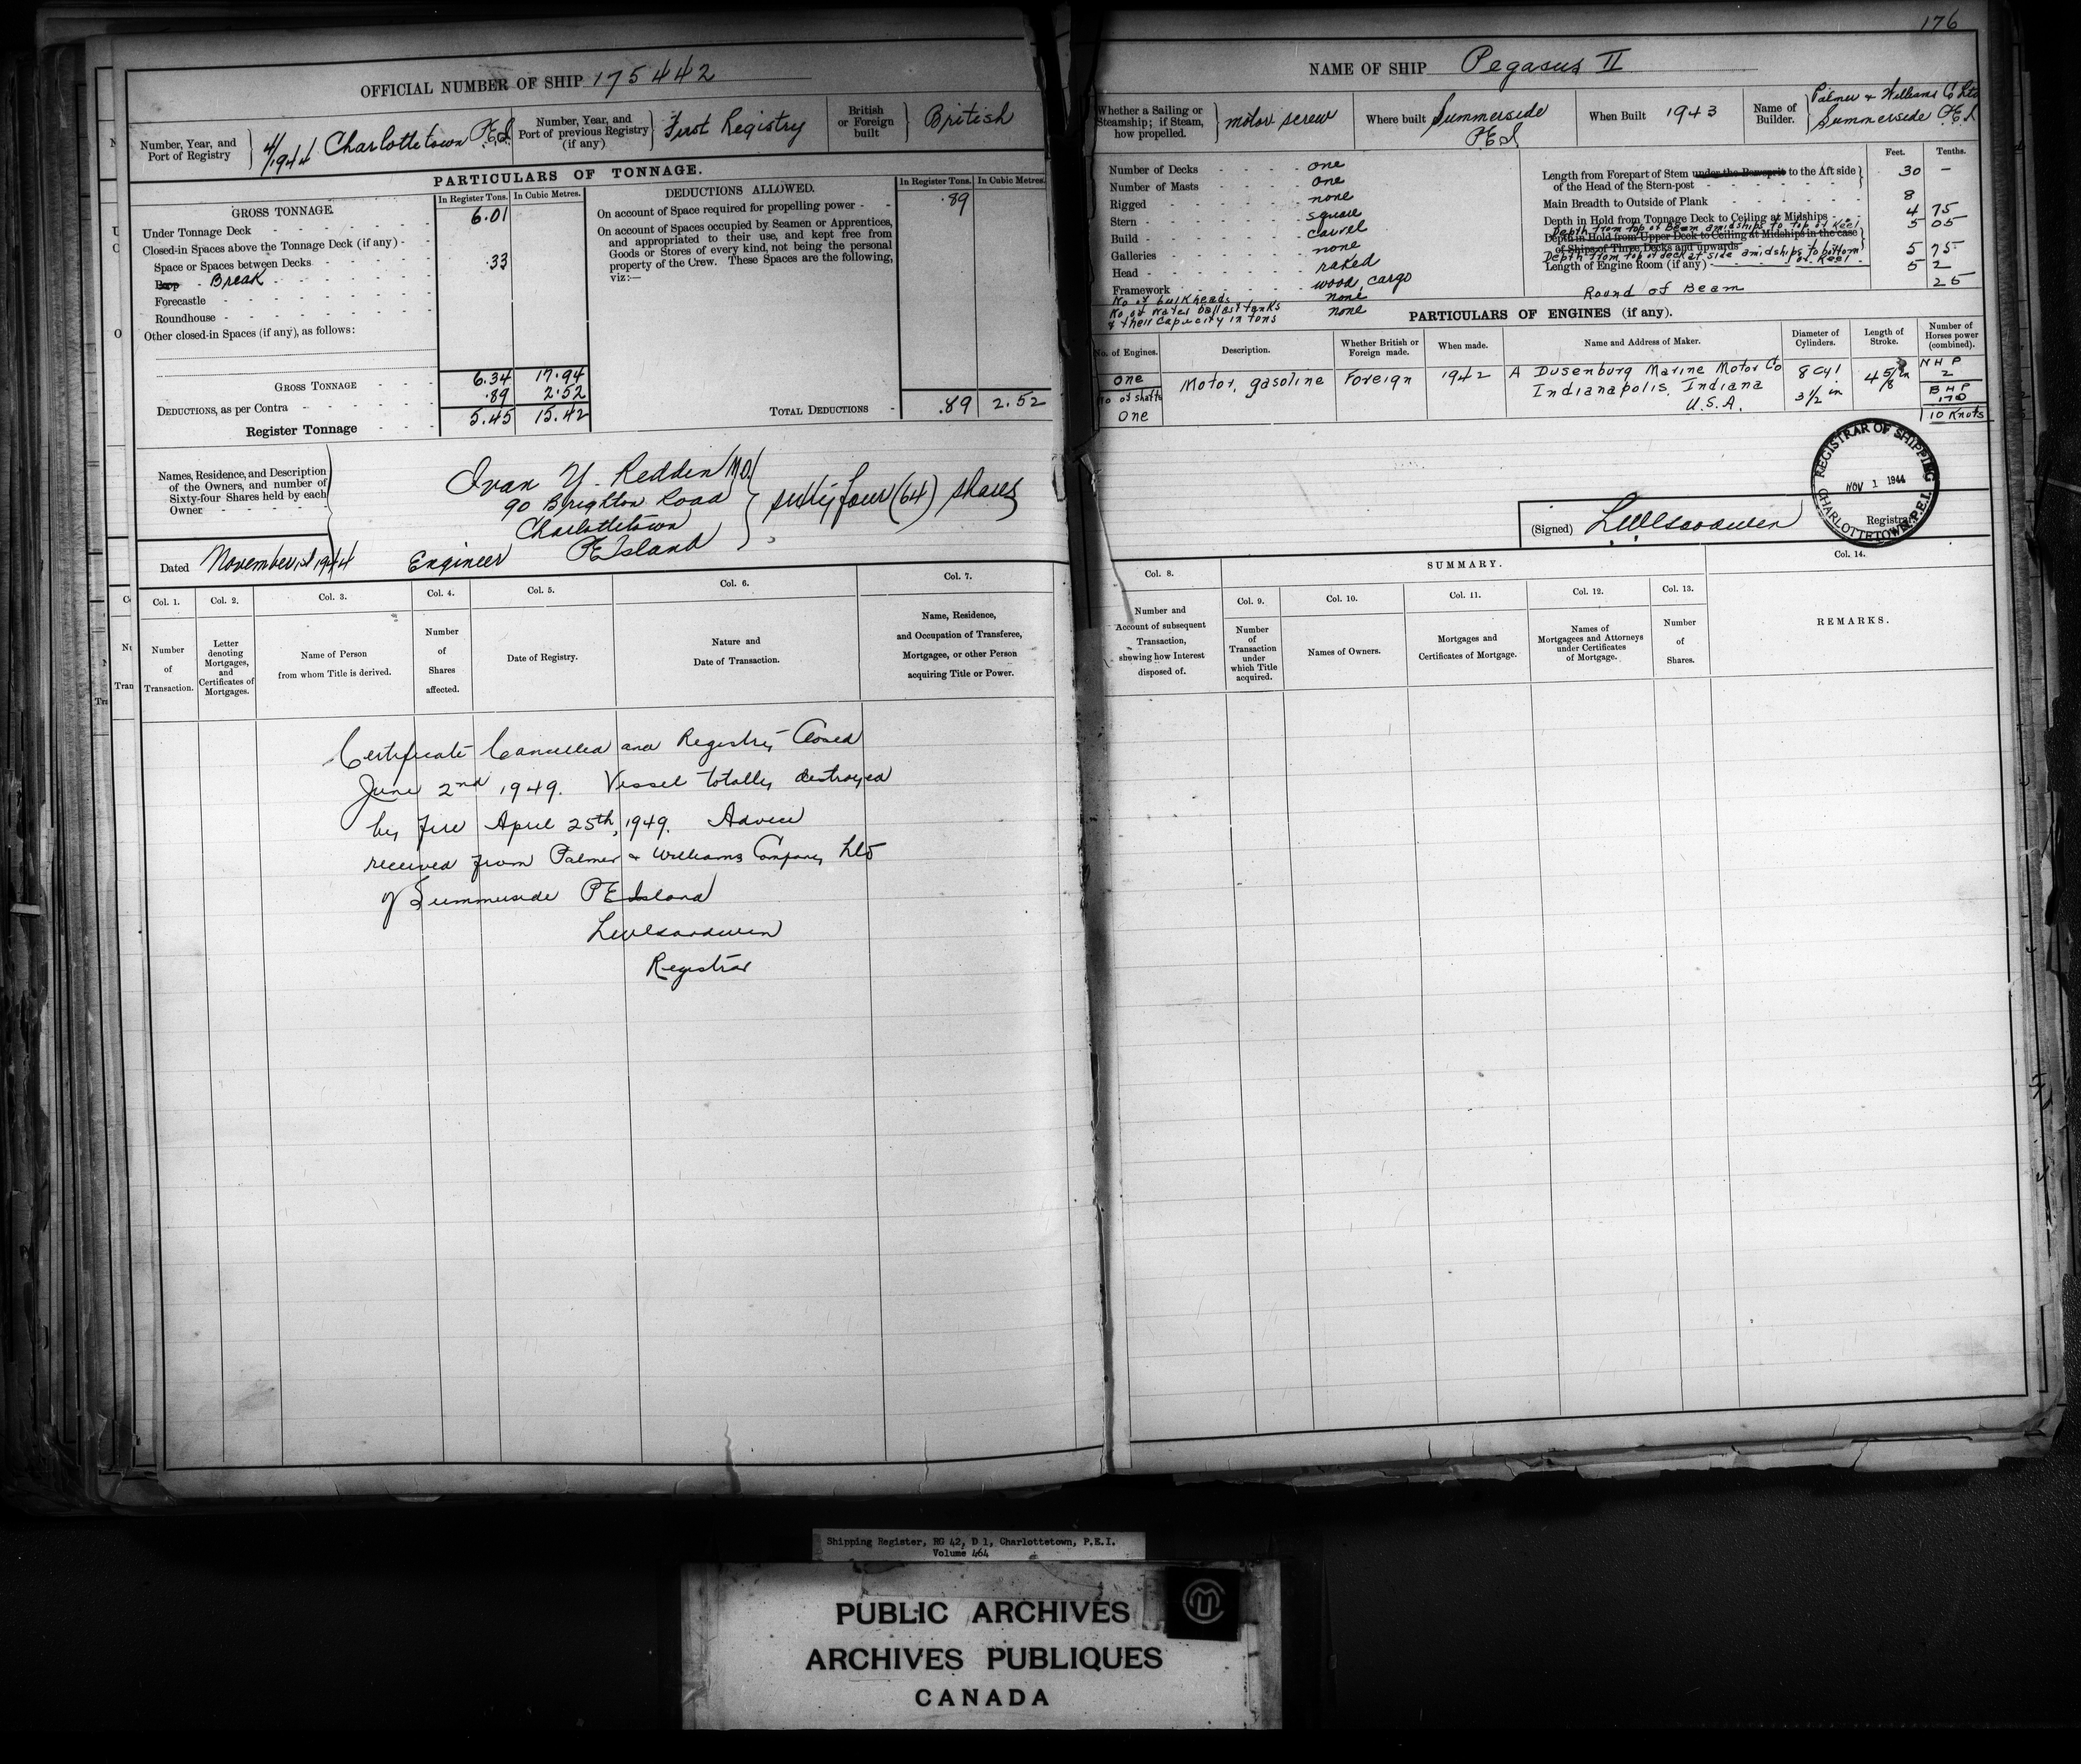 176
OFFICIAL NUMBER OF SHIP 175442
Number, Year, and Port of Registry
4/1944 Charlottetown P.E.I.
Number, Year, and Port of previous Registry (if any)
First Registry
British or Foreign built
British
PARTICULARS OF TONNAGE.
GROSS TONNAGE.
In Register Tons.
In Cubic Metres.
Under Tonnage Deck 6.01
Closed-in Spaces above the Tonnage Deck (if any)
Space or Spaces between Decks
Poop Break .33
Forecastle
Roundhouse
Other closed-in Spaces (if any), as follows:
GROSS TONNAGE 6.34 17.94
DEDUCTIONS, as per Contra .89 2.52
Register Tonnage 5.45 15.42
DEDUCTIONS ALLOWED.
In Register Tons.
In Cubic Metres.
On account of Space required for propelling power .89
On account of Spaces occupied by Seamen or Apprentices,
and appropriated to their use, and kept free from
Goods or Stores of every kind, not being the personal
property of the Crew. These Spaces are the following,
viz:—
TOTAL DEDUCTIONS .89 2.52
Names, Residence, and Description
of the Owners, and number of
Sixty-four Shares held by each
Owner
Ivan Y. Reddin M.D.
90 Brighton Road
Charlottetown
P E Island
sixty four (64) shares
Engineer
Dated November 1st 1944
Col. 1.
Number of Transaction.
Col. 2.
Letter denoting Mortgages, and Certificates of Mortgages.
Col. 3.
Name of Person from whom Title is derived.
Col. 4.
Number of Shares affected.
Col. 5.
Date of Registry.
Col. 6.
Nature and Date of Transaction.
Col. 7.
Name, Residence, and Occupation of Transferee, Mortgagee, or other Person acquiring Title or Power.
Certificate Cancelled and Registry Closed
June 2nd 1949. Vessel totally destroyed
by fire April 25th, 1949. Advice
received from Palmer & Williams Company Ltd
of Summerside P E Island
Registrar
NAME OF SHIP Pegasus II
Whether a Sailing or Steamship; if Steam, how propelled.
motor screw
Where built
Summerside P.E.I
When Built 1943
Name of Builder.
Palmer & Williams Co Ltd
Summerside P.E.I
Number of Decks one
Number of Masts one
Rigged none
Stern square
Build carvel
Galleries none
Head raked
Framework wood, cargo
No of bulkheads none
No of water ballast tanks none
& their capacity in tons
Feet. Tenths.
Length from Forepart of Stem under the Bowsprit to the Aft side of the Head of the Stern-post 30 —
Main Breadth to Outside of Plank 8
Depth in Hold from Tonnage Deck to Ceiling at Midships 4 75
Depth from top of Beam amidships to top of Keel 5 05
Depth in Hold from Upper Deck to Ceiling at Midships in the case of Ships of Three Decks and upwards
Depth from top of deck at side amidships to bottom of Keel 5 75
Length of Engine Room (if any) 5 2
Round of Beam 25
PARTICULARS OF ENGINES (if any).
No. of Engines.
Description.
Whether British or Foreign made.
When made.
Name and Address of Maker.
Diameter of Cylinders.
Length of Stroke.
Number of Horses power (combined).
one
No of shafts
one
Motor, gasoline
Foreign
1942
A Dusenburg Marine Motor Co
Indianapolis, Indiana
U.S.A.
8 Cyl
3 1/2 in
4 5/8 in
N H P
2
B H P
170
10 Knots
(Signed)
Registrar
REGISTRAR OF SHIPPING
NOV 1 1944
CHARLOTTETOWN, P.E.I.
Col. 8.
Number and Account of subsequent Transaction, showing how Interest disposed of.
SUMMARY.
Col. 9.
Number of Transaction under which Title acquired.
Col. 10.
Names of Owners.
Col. 11.
Mortgages and Certificates of Mortgage.
Col. 12.
Names of Mortgagees and Attorneys under Certificates of Mortgage.
Col. 13.
Number of Shares.
Col. 14.
REMARKS.
Shipping Register, RG 42, D 1, Charlottetown, P.E.I.
Volume 464
PUBLIC ARCHIVES
ARCHIVES PUBLIQUES
CANADA